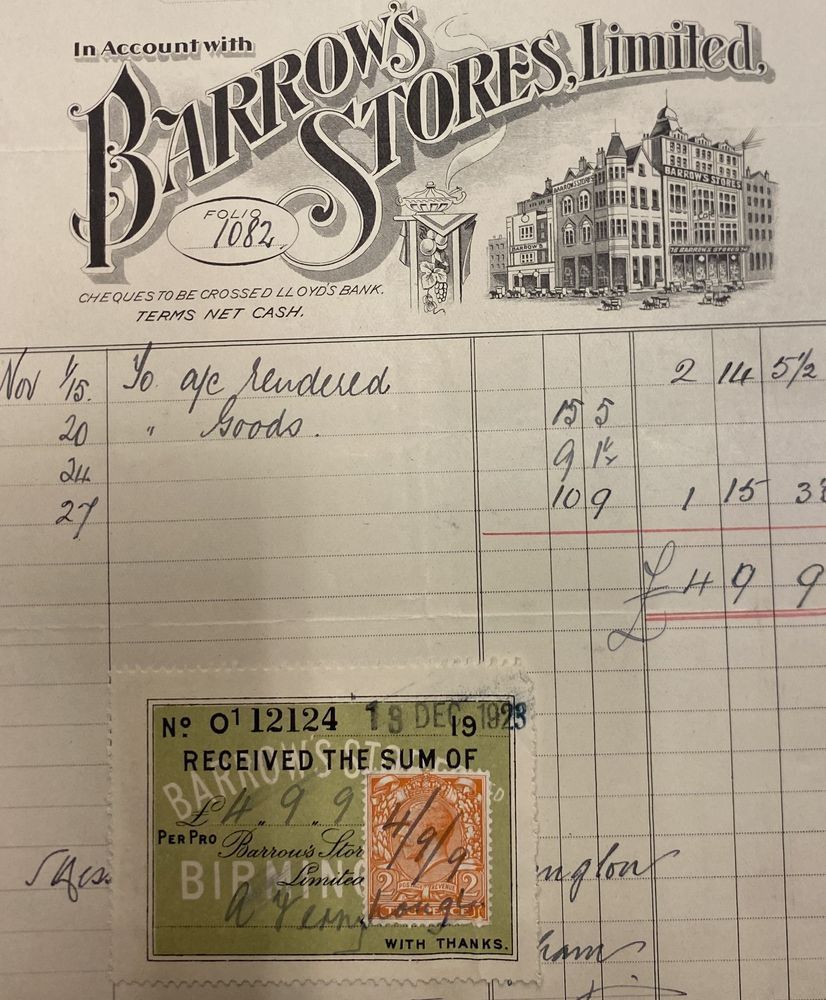 In Account with
BARROW'S
STORES, Limited,
BARROW'S STORES
BARROW'S STORES
BARROW'S
BARROW'S STORES
FOLIO
1082
CHEQUES TO BE CROSSED LLOYD'S BANK.
TERMS NET CASH.
Nov 1/15. To a/c rendered 2 14 5 1/2
20 " Goods. 15 5
24 9 1 1/2
27 10 9 1 15 3
£ 4 9 9
No 01 12124 19 DEC 1923
19
RECEIVED THE SUM OF
BARROW'S STO
£4 " 9 " 9
4/9/9
PER PRO Barrow's Stor
Limited
BIRMIN
2 POSTAGE REVENUE 2
WITH THANKS.